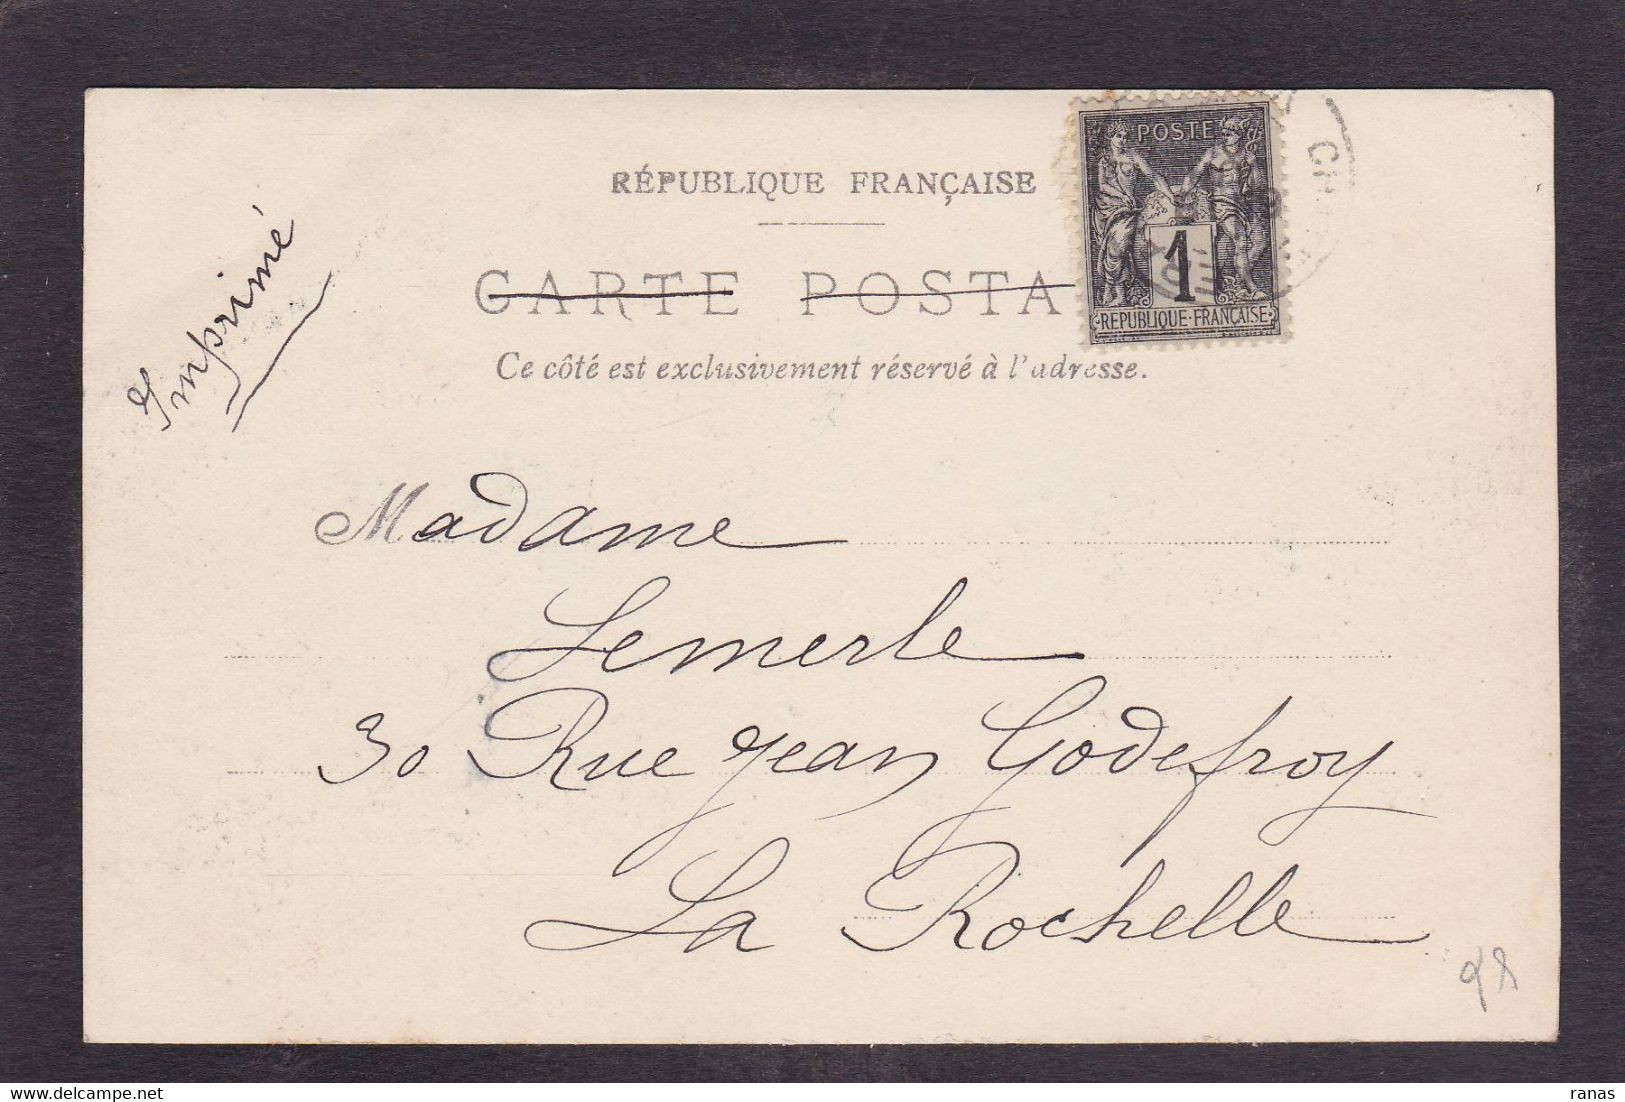 RÉPUBLIQUE FRANÇAISE
CARTE POSTA
Ce côté est exclusivement réservé à l'adresse.
POSTE
1
REPUBLIQUE·FRANÇAISE
Imprimé
Madame
Lemerle
30 Rue Jean Godefroy
La Rochelle
ranas